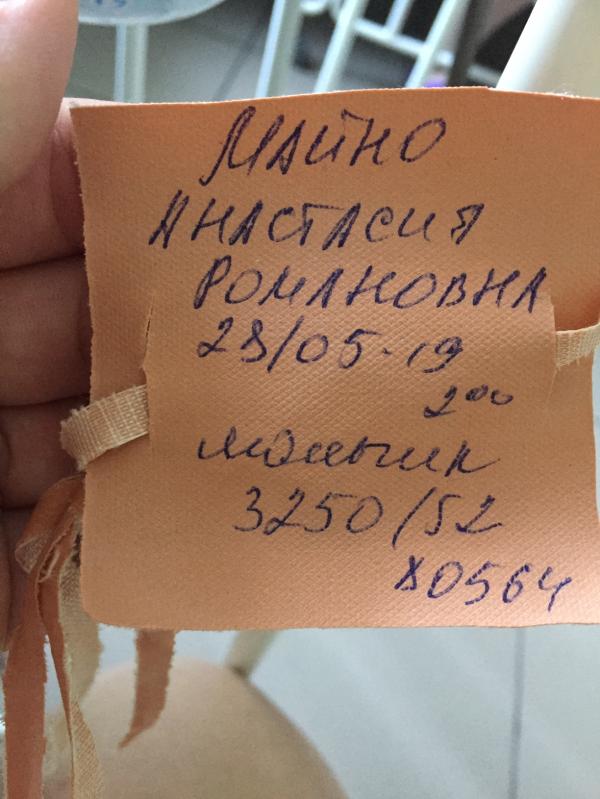 МАЙНО
АНАСТАСИЯ
РОМАНОВНА
28/05-19
2⁰⁰
мальчик
3250/52
80564